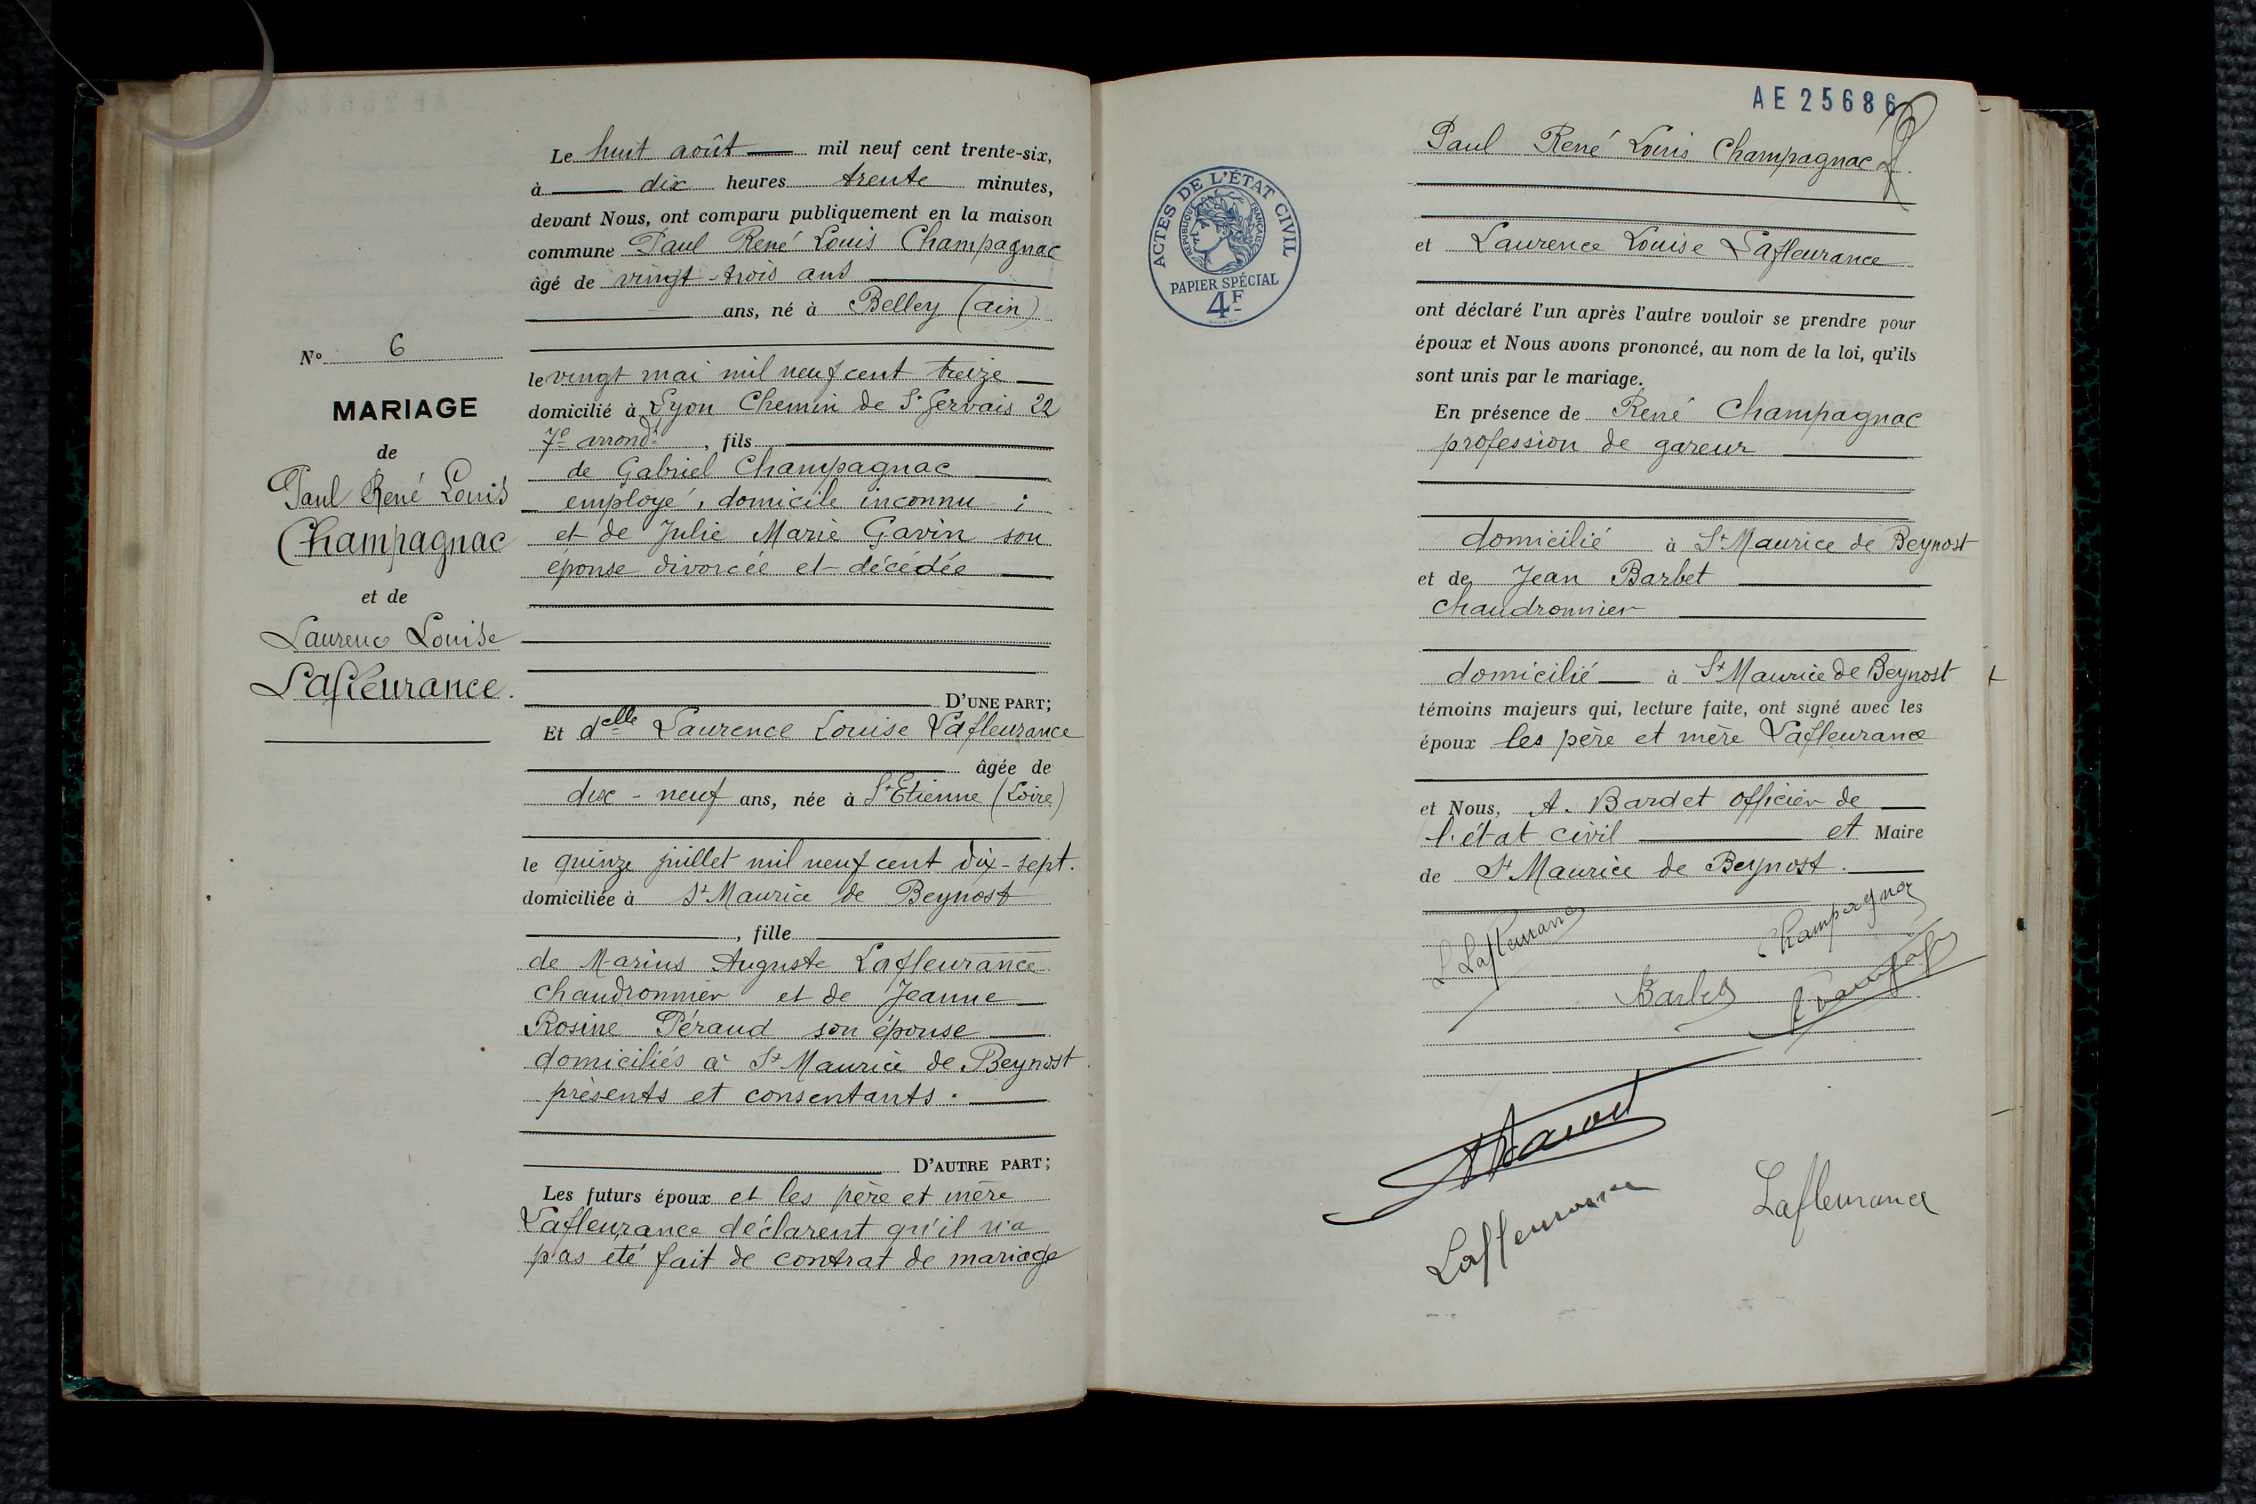 N° 6
MARIAGE
de
Paul René Louis
Champagnac
et de
Laurence Louise
Lafleurance.
Le huit août mil neuf cent trente-six,
à dix heures trente minutes,
devant Nous, ont comparu publiquement en la maison
commune Paul René Louis Champagnac
âgé de vingt-trois ans
ans, né à Belley (ain)
le vingt mai mil neuf cent treize
domicilié à Lyon Chemin de St Gervais 22
7e arrondt , fils
de Gabriel Champagnac
employé, domicile inconnu ;
et de Julie Marie Gavin son
épouse divorcée et décédée
D'UNE PART;
Et delle Laurence Louise Lafleurance
âgée de
dix-neuf ans, née à St Etienne (Loire)
le quinze juillet mil neuf cent dix-sept.
domiciliée à St Maurice de Beynost
, fille
de Marius Auguste Lafleurance
chaudronnier et de Jeanne
Rosine Péraud son épouse
domiciliés à St Maurice de Beynost
présents et consentants.
D'AUTRE PART;
Les futurs époux et les père et mère
Lafleurance déclarent qu'il n'a
pas été fait de contrat de mariage
AE 25686
ACTES DE L'ÉTAT CIVIL
RÉPUBLIQUE FRANÇAISE
PAPIER SPÉCIAL
4F
Paul René Louis Champagnac
et Laurence Louise Lafleurance
ont déclaré l'un après l'autre vouloir se prendre pour
époux et Nous avons prononcé, au nom de la loi, qu'ils
sont unis par le mariage.
En présence de René Champagnac
profession de gareur
domicilié à St Maurice de Beynost
et de Jean Barbet
chaudronnier
domicilié à St Maurice de Beynost
témoins majeurs qui, lecture faite, ont signé avec les
époux les père et mère Lafleurance
et Nous, A. Bardet officier de
l'état civil et Maire
de St Maurice de Beynost.
L Lafleurance
Champagnac
Barbet
Lafleurance
Lafleurance